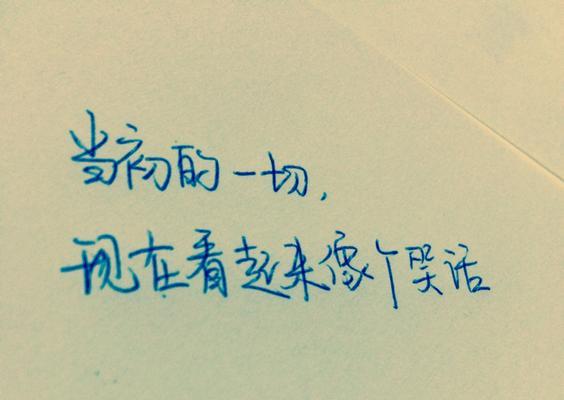 当初的一切，
现在看起来像个哭话